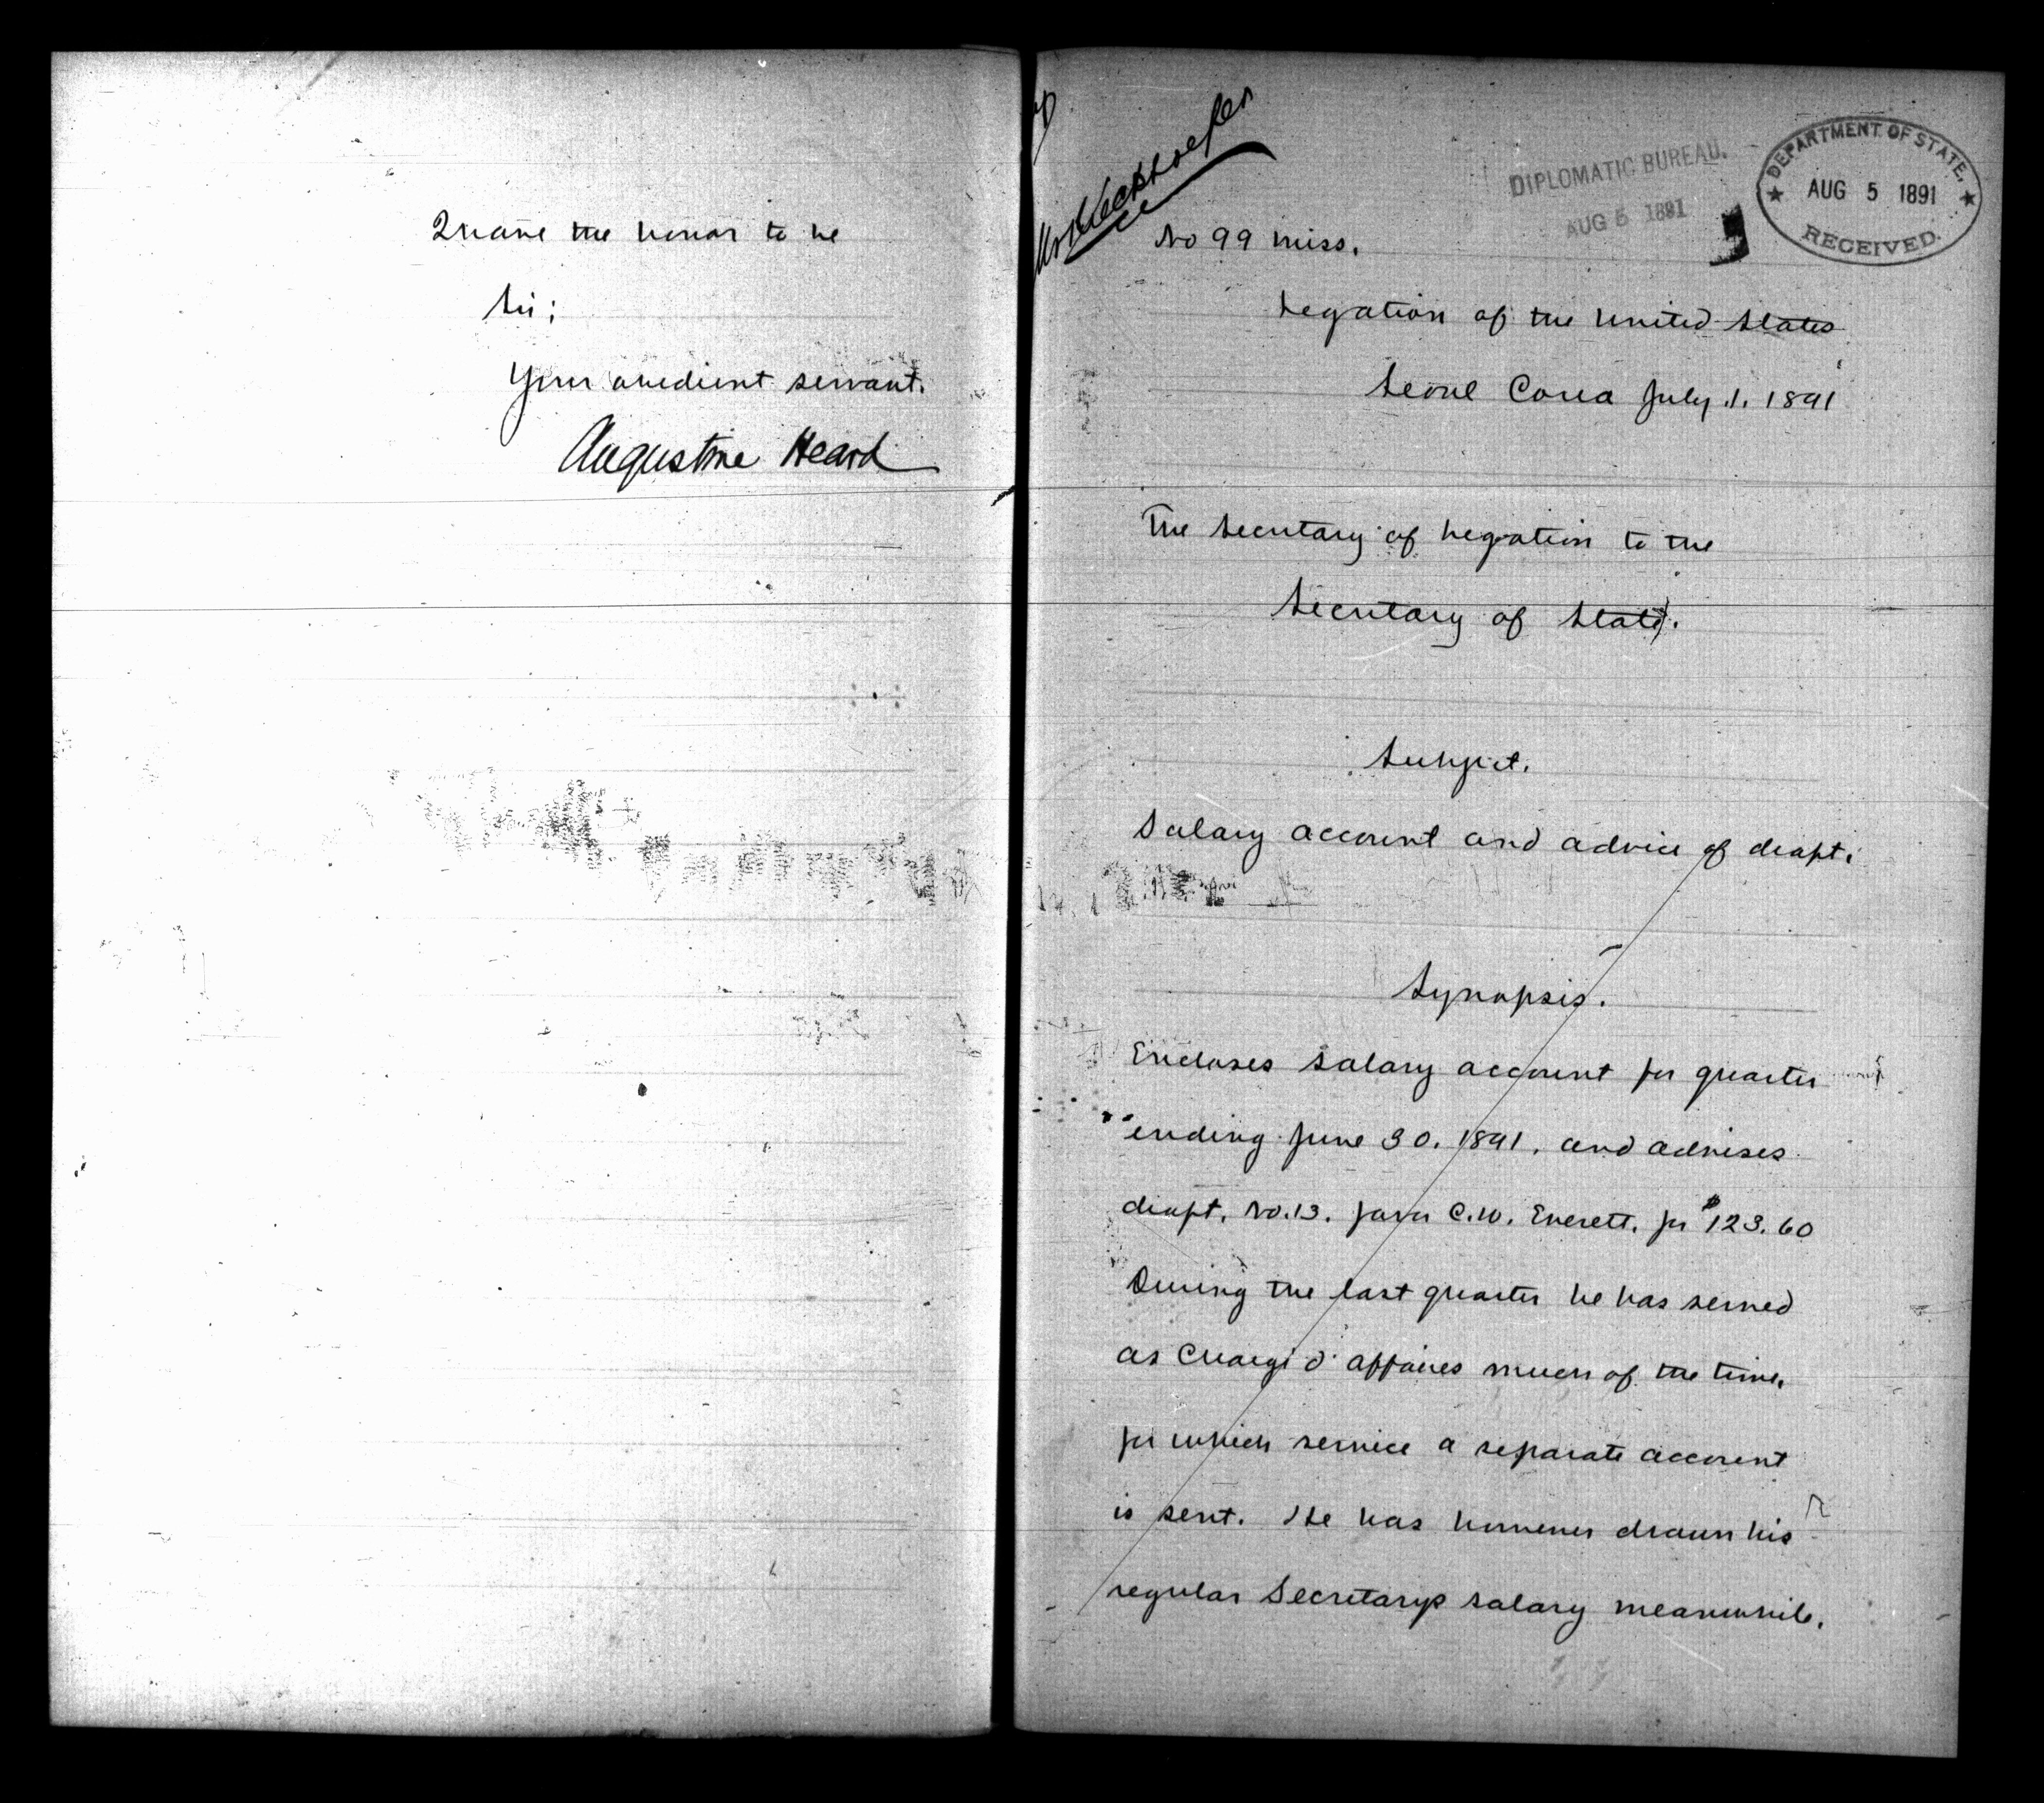 I have the honor to be
Sir;
Your obedient servant.
Augustine Heard
DIPLOMATIC BUREAU.
AUG 5 1891
DEPARTMENT OF STATE.
AUG 5 1891
RECEIVED.
No 99 miss.
Legation of the United States
Seoul Corea July 1. 1891
The Secretary of Legation to the
Secretary of State.
Subject.
Salary account and advice of draft.
Synopsis.
Encloses salary account for quarter
ending June 30. 1891. and advises
draft. No. 13. favor C.W. Everett. for $123.60
During the last quarter he has served
as Chargé d'affaires much of the time,
for which service a separate account
is sent. He has however drawn his
regular Secretarys salary meanwhile.